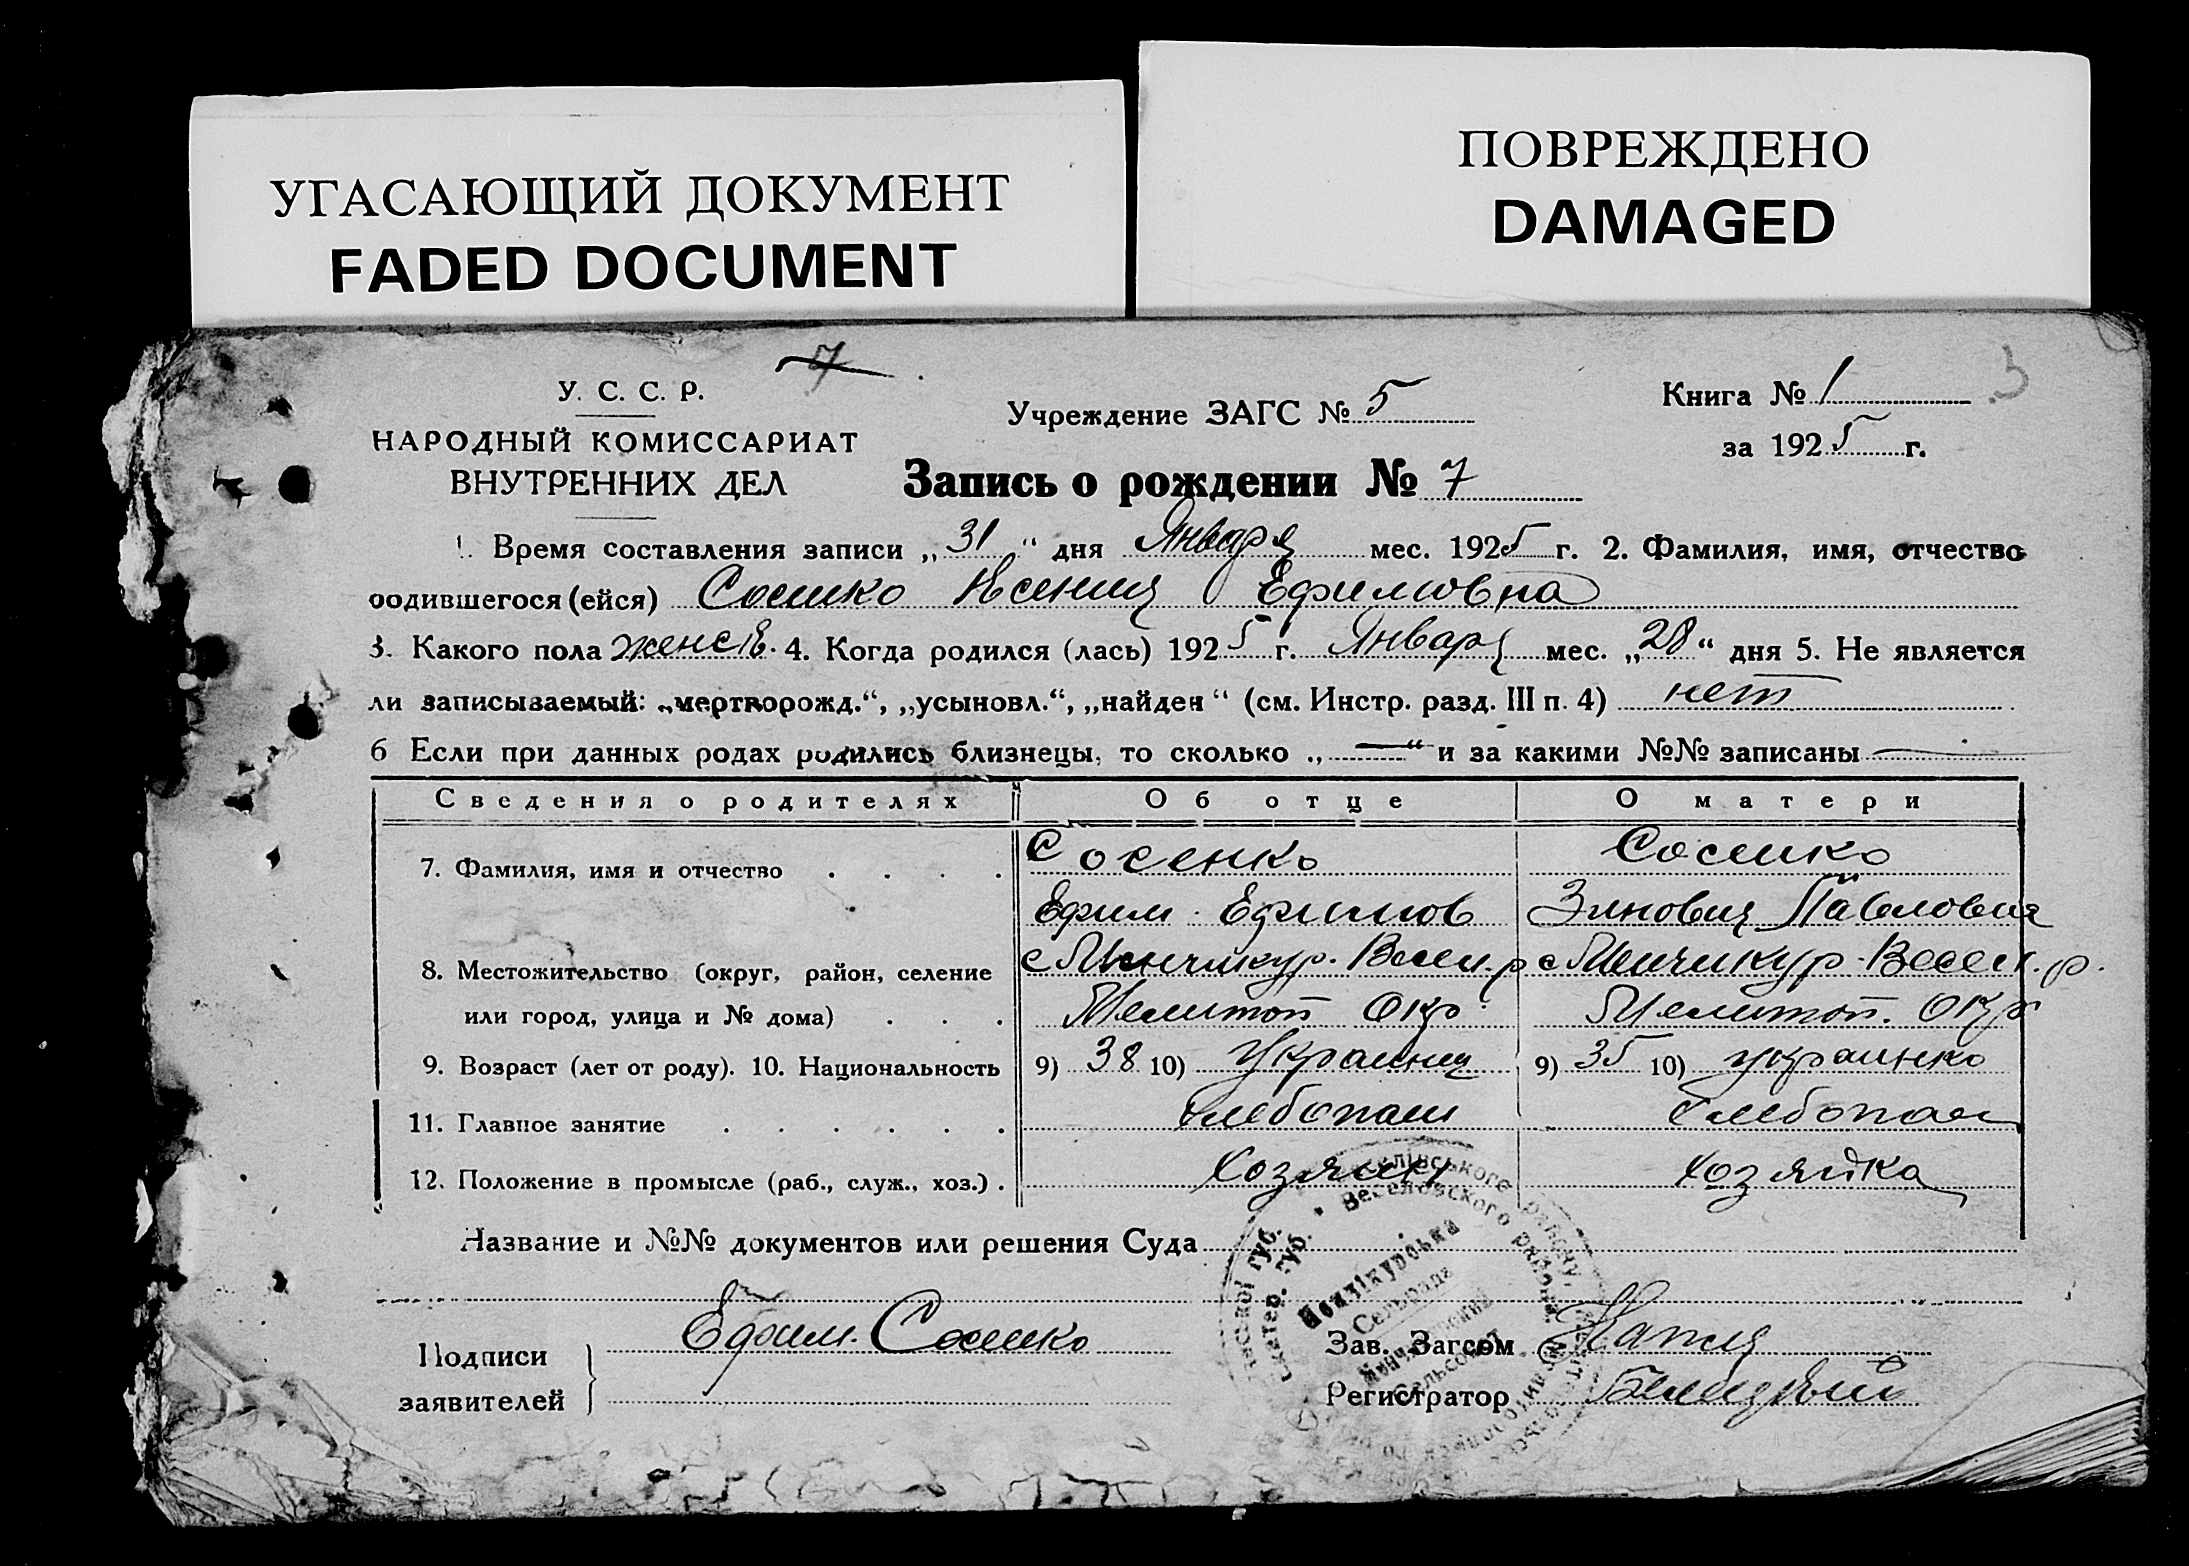 УГАСАЮЩИЙ ДОКУМЕНТ
FADED DOCUMENT
ПОВРЕЖДЕНО
DAMAGED
7
3
У. С. С. Р.
НАРОДНЫЙ КОМИССАРИАТ
ВНУТРЕННИХ ДЕЛ
Учреждение ЗАГС № 5
Книга № 1
за 1925 г.
Запись о рождении № 7
1. Время составления записи „31“ дня Января мес. 1925 г. 2. Фамилия, имя, отчество
родившегося (ейся) Сосенко Ксения Ефимовна
3. Какого пола женск. 4. Когда родился (лась) 1925 г. Января мес. „28“ дня 5. Не является
ли записываемый: „мертворожд.“, „усыновл.“, „найден“ (см. Инстр. разд. III п. 4) нет
6 Если при данных родах родились близнецы, то сколько „—“ и за какими №№ записаны —
Сведения о родителях Об отце О матери
7. Фамилия, имя и отчество Сосенко Сосенко
Ефим Ефимов Зиновия Павловна
8. Местожительство (округ, район, селение с Менчикур. Весел. р с Менчикур. Весел. р.
или город, улица и № дома) Мелитоп Окр Мелитоп. Окр
9. Возраст (лет от роду). 10. Национальность 9) 38 10) Украинец 9) 35 10) украинка
11. Главное занятие хлебопаш хлебопаш
12. Положение в промысле (раб., служ., хоз.) Хозяин хозяйка
Название и №№ документов или решения Суда
Веселівського району,
Веселовского района
Сельрада
Сельсовет
Подписи
заявителей
Ефим Сосенко
Зав. Загсом
Регистратор